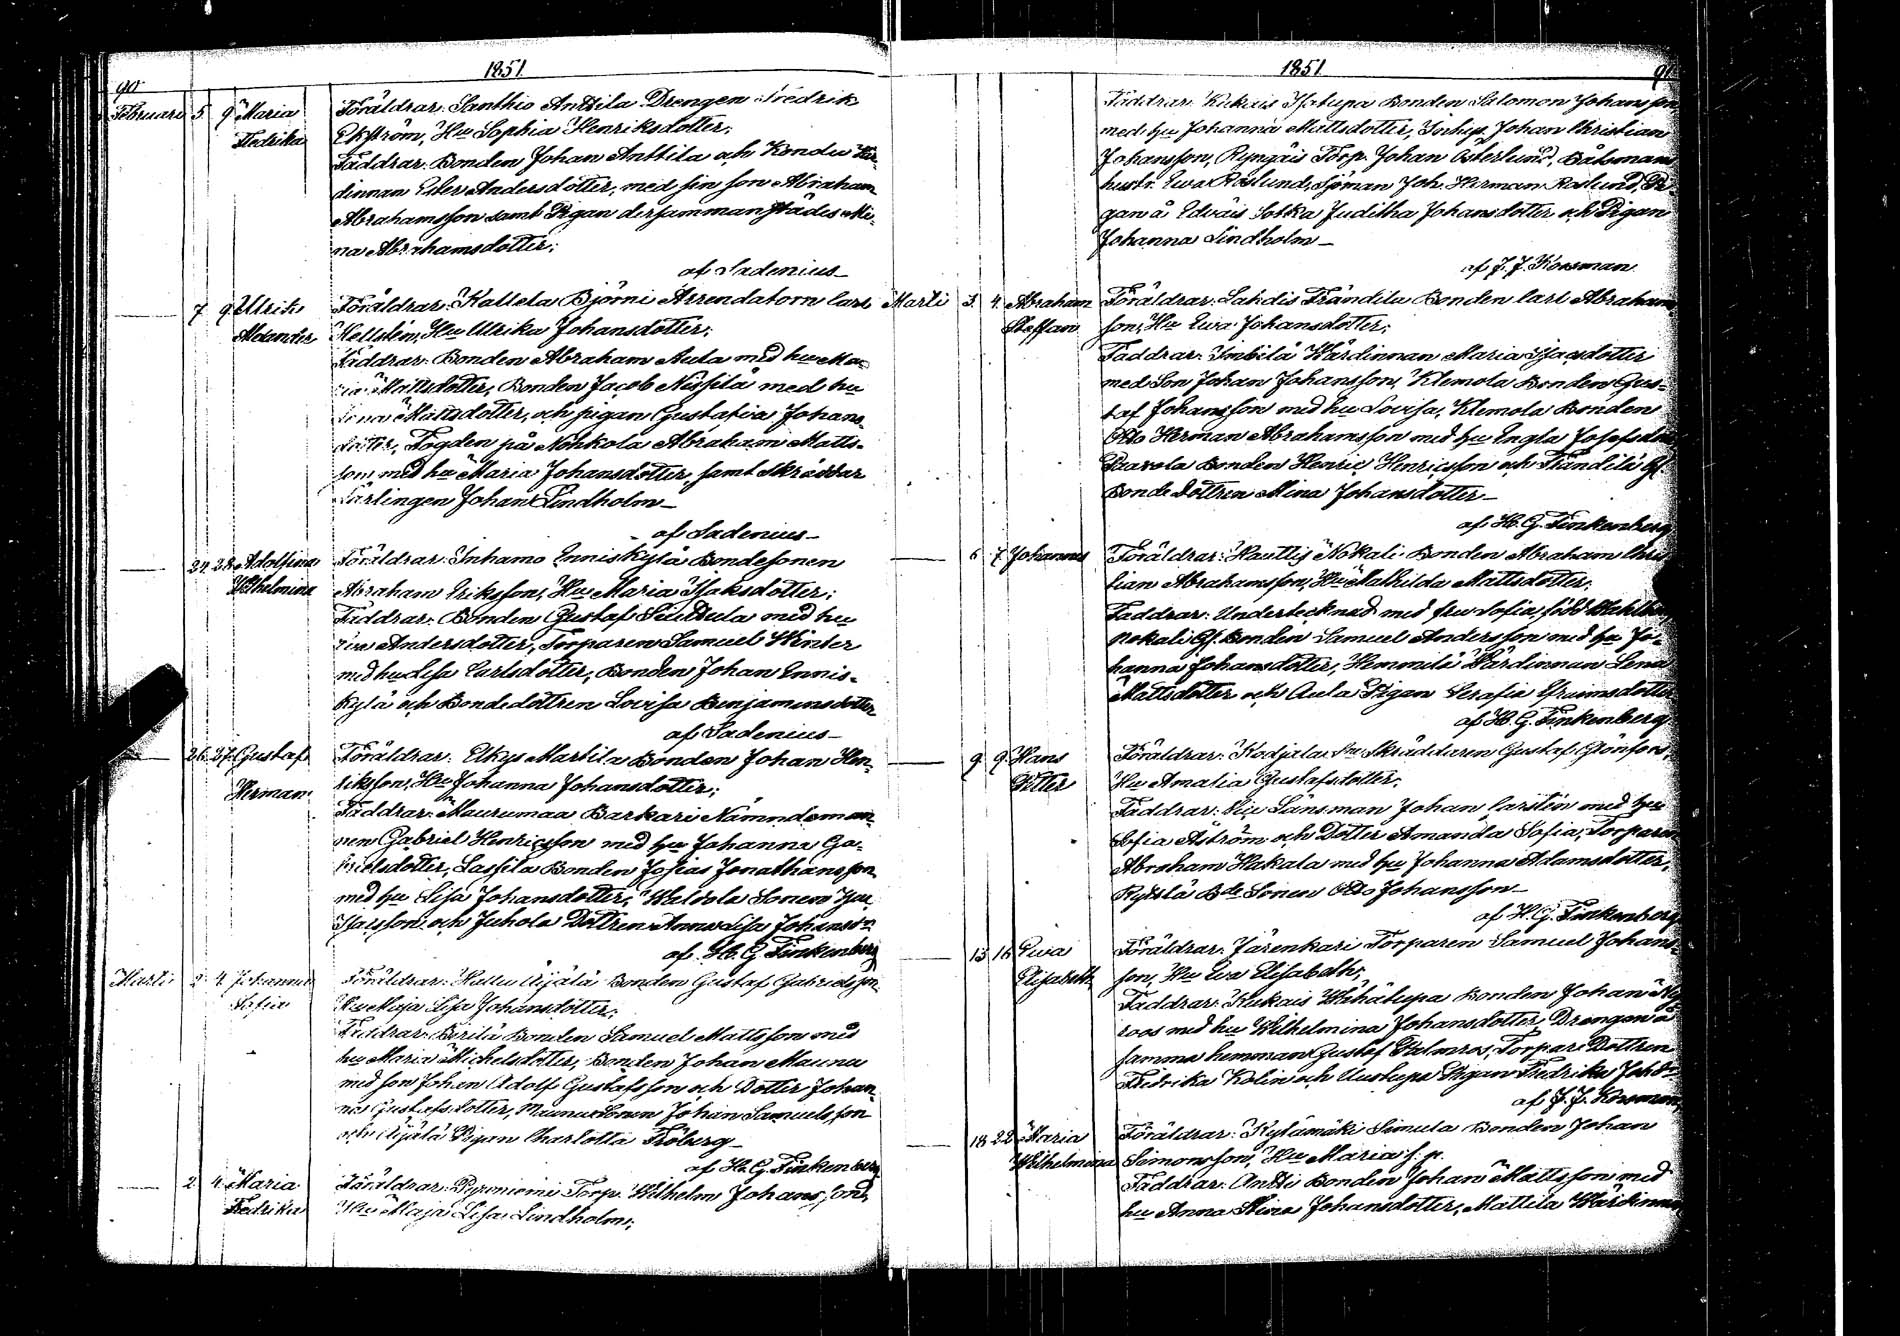 90
1851
Februari 5 9 Maria Föräldrar: Santtio Anttila Drengen Fredrik
Fredrika Ekström, Hu Sophia Henriksdotter;
Faddrar: Bonden Johan Anttila och Kondu Vär-
dinnan Ester Andersdotter, med sin son Abraham
Abrahamsson samt Pigan dersammanstädes Mi-
na Abrahamsdotter;
af Sadenius
7 9 Ulrik Föräldrar: Kallela Björni Arrendatorn Carl
Alexander Hellstén, Hu Ulrika Johansdotter;
Faddrar: Bonden Abraham Aula med hu Ma-
ria Mattsdotter, Bonden Jacob Nissilä med hu
Lena Mattsdotter, och pigan Gustafva Johans-
dotter, Fogden på Nohkola Abraham Matts-
son med hu Maria Johansdotter, samt Skräddar
Lärlingen Johan Lindholm
af Sadenius
24 28 Adolfina Föräldrar: Inhamo Enniskylä Bondesonen
Wilhelmina Abraham Eriksson, Hu Maria Isaksdotter;
Faddrar: Bonden Gustaf med hu
Andersdotter, Torparen Samuel Winter
med hu Lisa Carlsdotter, Bonden Johan Ennis-
kylä och Bondedottren Lovisa Benjaminsdotter
af Sadenius
26 27 Gustaf Föräldrar: Elkys Martila Bonden Johan Hen-
Herman riksson, Hu Johanna Johansdotter;
Faddrar: Maurumaa Barkari Nämndeman-
nen Gabriel Henricsson med hu Johanna Ga-
brielsdotter, Lassila Bonden Josias Jonathansson
med hu Lisa Johansdotter, Sonen
Isacsson och Juhola Dottren Anna Lisa Johansdr
af H. G. Finkenberg
Martii 2 4 Johanna Föräldrar: Äijälä Bonden Gustaf Gabrielsson
Sofia Hu Maja Lisa Johansdotter;
Faddrar: Bonden Samuel Mattsson med
hu Maria Michelsdotter, Bonden Johan Mauna
med son Johan Adolf Gustafsson och Dotter Johan-
na Gustafsdotter, Mauna Sonen Johan Samuelsson
och Äijälä Pigan Charlotta Fröberg
af H. G. Finkenberg
2 4 Maria Föräldrar: Torp. Wilhelm Johansson,
Fredrika Hu Maja Lisa Lindholm;
1851
91
Faddrar: Kukais Isotupa Bonden Salomon Johansson
med hu Johanna Mattsdotter, Inhys. Johan Christian
Johansson, Ryngäis Torp. Johan Österlund, Båtsmans
hustr. Ewa Roslund, Sjöman Joh. Herman Roslund, Pi-
gan å Edväis Sotka Juditha Johansdotter och Pigan
Johanna Lindholm
af J. J. Korsman
Martii 3 4 Abraham Föräldrar: Lahdis Frändilä Bonden Carl Abrahams
Staffan son, Hu Ewa Johansdotter;
Faddrar: Imbilä Wärdinnan Maria Isacsdotter
med Son Johan Johansson, Klemola Bonden Gus-
taf Johansson med hu Lovisa, Klemola Bonden
Otto Herman Abrahamsson med hu Engla Josefsdotter
Paavola Bonden Henric Henricsson och Frändilä
Bondedottren Mina Johansdotter
af H. G. Finkenberg
6 7 Johannes Föräldrar: Kauttis Nokali Bonden Abraham Chris
tian Abrahamsson, Hu Mathilda Mattsdotter;
Faddrar: Undertecknad med fru Sofia, född
Nokali Gf. Bonden Samuel Andersson med hu Jo-
hanna Johansdotter, Hemmilä Wärdinnan Lena
Mattsdotter och Aula Pigan Serafia Grimsdotter
af H. G. Finkenberg
9 9 Hans Föräldrar: Kodjala Skräddaren Gustaf Grönfors,
Petter Hu Amalia Gustafsdotter;
Faddrar: Vice Länsman Johan Carstén med hu
Sofia Åström och Dotter Amanda Sofia, Torparen
Abraham Hakala med hu Johanna Adamsdotter,
Bde Sonen Otto Johansson
af H. G. Finkenberg
13 16 Ewa Föräldrar: Järenkari Torparen Samuel Johans-
Elisabeth son, Hu Ewa Elisabeth;
Faddrar: Kukais Wähätupa Bonden Johan
roos med hu Wilhelmina Johansdotter, Drengen å
samma hemman Gustaf Palmros, Torpare Dottren
Fredrika Kolin och Uustupa Pigan Fredrika Johdr
af J. J. Korsman
18 22 Maria Föräldrar: Kylämäki Simula Bonden Johan
Wilhelmina Simonsson, Hu Maria s. p.
Faddrar: Antti Bonden Johan Mattsson med
hu Anna Stina Johansdotter, Mattila Wärdinnan